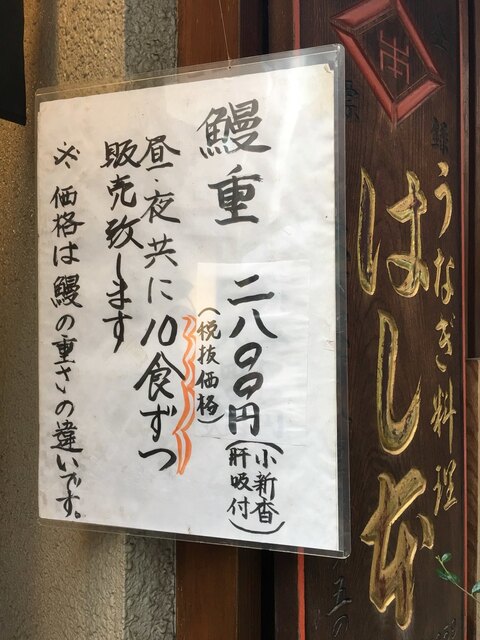 うなぎ料理
はし本
鰻重 二八〇〇円(小新香
肝吸付)
(税抜価格)
昼・夜共に10食ずつ
販売致します
※価格は鰻の重さの違いです。